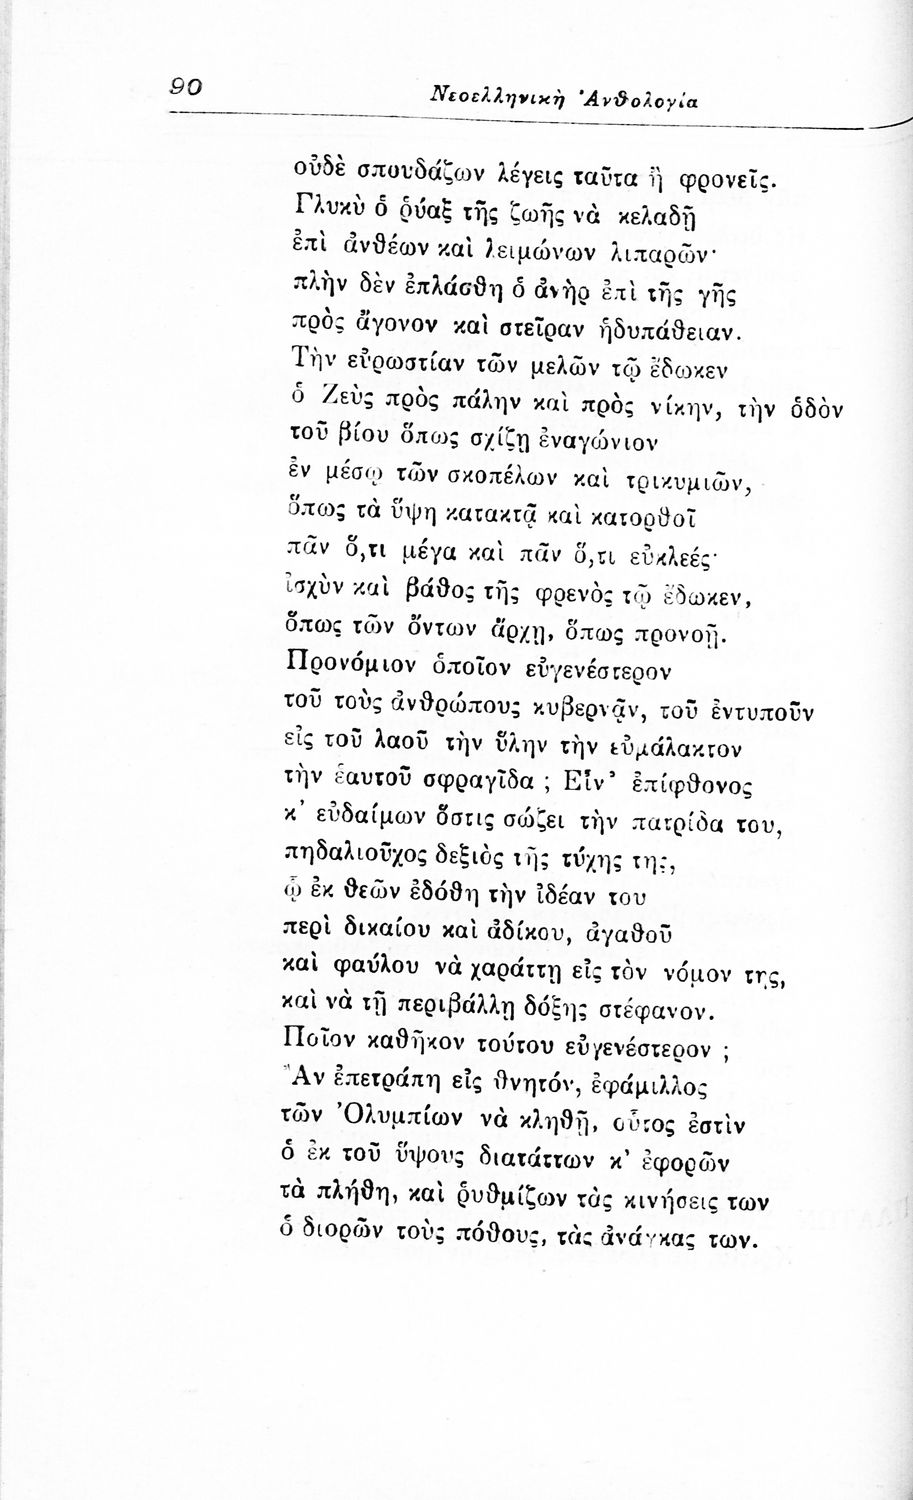 90
Νεοελληνικὴ Ἀνθολογία
οὐδὲ σπουδάζων λέγεις ταῦτα ἢ φρονεῖς.
Γλυκὺ ὁ ῥύαξ τῆς ζωῆς νὰ κελαδῇ
ἐπὶ ἀνθέων καὶ λειμώνων λιπαρῶν·
πλὴν δὲν ἐπλάσθη ὁ ἀνὴρ ἐπὶ τῆς γῆς
πρὸς ἄγονον καὶ στεῖραν ἡδυπάθειαν.
Τὴν εὐρωστίαν τῶν μελῶν τῷ ἔδωκεν
ὁ Ζεὺς πρὸς πάλην καὶ πρὸς νίκην, τὴν ὁδὸν
τοῦ βίου ὅπως σχίζῃ ἐναγώνιον
ἐν μέσῳ τῶν σκοπέλων καὶ τρικυμιῶν,
ὅπως τὰ ὕψη κατακτᾷ καὶ κατορθοῖ
πᾶν ὅ,τι μέγα καὶ πᾶν ὅ,τι εὐκλεές·
ἰσχὺν καὶ βάθος τῆς φρενὸς τῷ ἔδωκεν,
ὅπως τῶν ὄντων ἄρχῃ, ὅπως προνοῇ.
Προνόμιον ὁποῖον εὐγενέστερον
τοῦ τοὺς ἀνθρώπους κυβερνᾷν, τοῦ ἐντυποῦν
εἰς τοῦ λαοῦ τὴν ὕλην τὴν εὐμάλακτον
τὴν ἑαυτοῦ σφραγῖδα ; Εἶν' ἐπίφθονος
κ' εὐδαίμων ὅστις σώζει τὴν πατρίδα του,
πηδαλιοῦχος δεξιὸς τῆς τύχης της,
ᾧ ἐκ θεῶν ἐδόθη τὴν ἰδέαν του
περὶ δικαίου καὶ ἀδίκου, ἀγαθοῦ
καὶ φαύλου νὰ χαράττῃ εἰς τὸν νόμον της,
καὶ νὰ τῇ περιβάλλῃ δόξης στέφανον.
Ποῖον καθῆκον τούτου εὐγενέστερον ;
Ἂν ἐπετράπη εἰς θνητόν, ἐφάμιλλος
τῶν Ὀλυμπίων νὰ κληθῇ, οὗτος ἐστὶν
ὁ ἐκ τοῦ ὕψους διατάττων κ' ἐφορῶν
τὰ πλήθη, καὶ ῥυθμίζων τὰς κινήσεις των
ὁ διορῶν τοὺς πόθους, τὰς ἀνάγκας των.